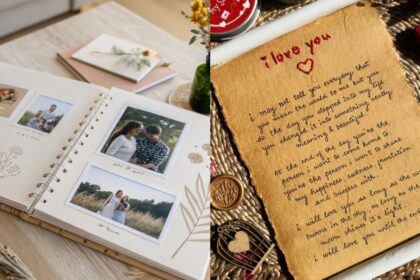 i love you
i may not tell you everyday that
you mean the world to me but you
do. the day you stepped into my life
you changed it into something really
meaning & beautiful.
At the end of the day you're the
person i want to come home to.
you're the person i want to share
my happiness, sadness, frustration
and success with.
i will love you as long as the
burns in the sky, as long as
moon shines it's light
i will love you until the